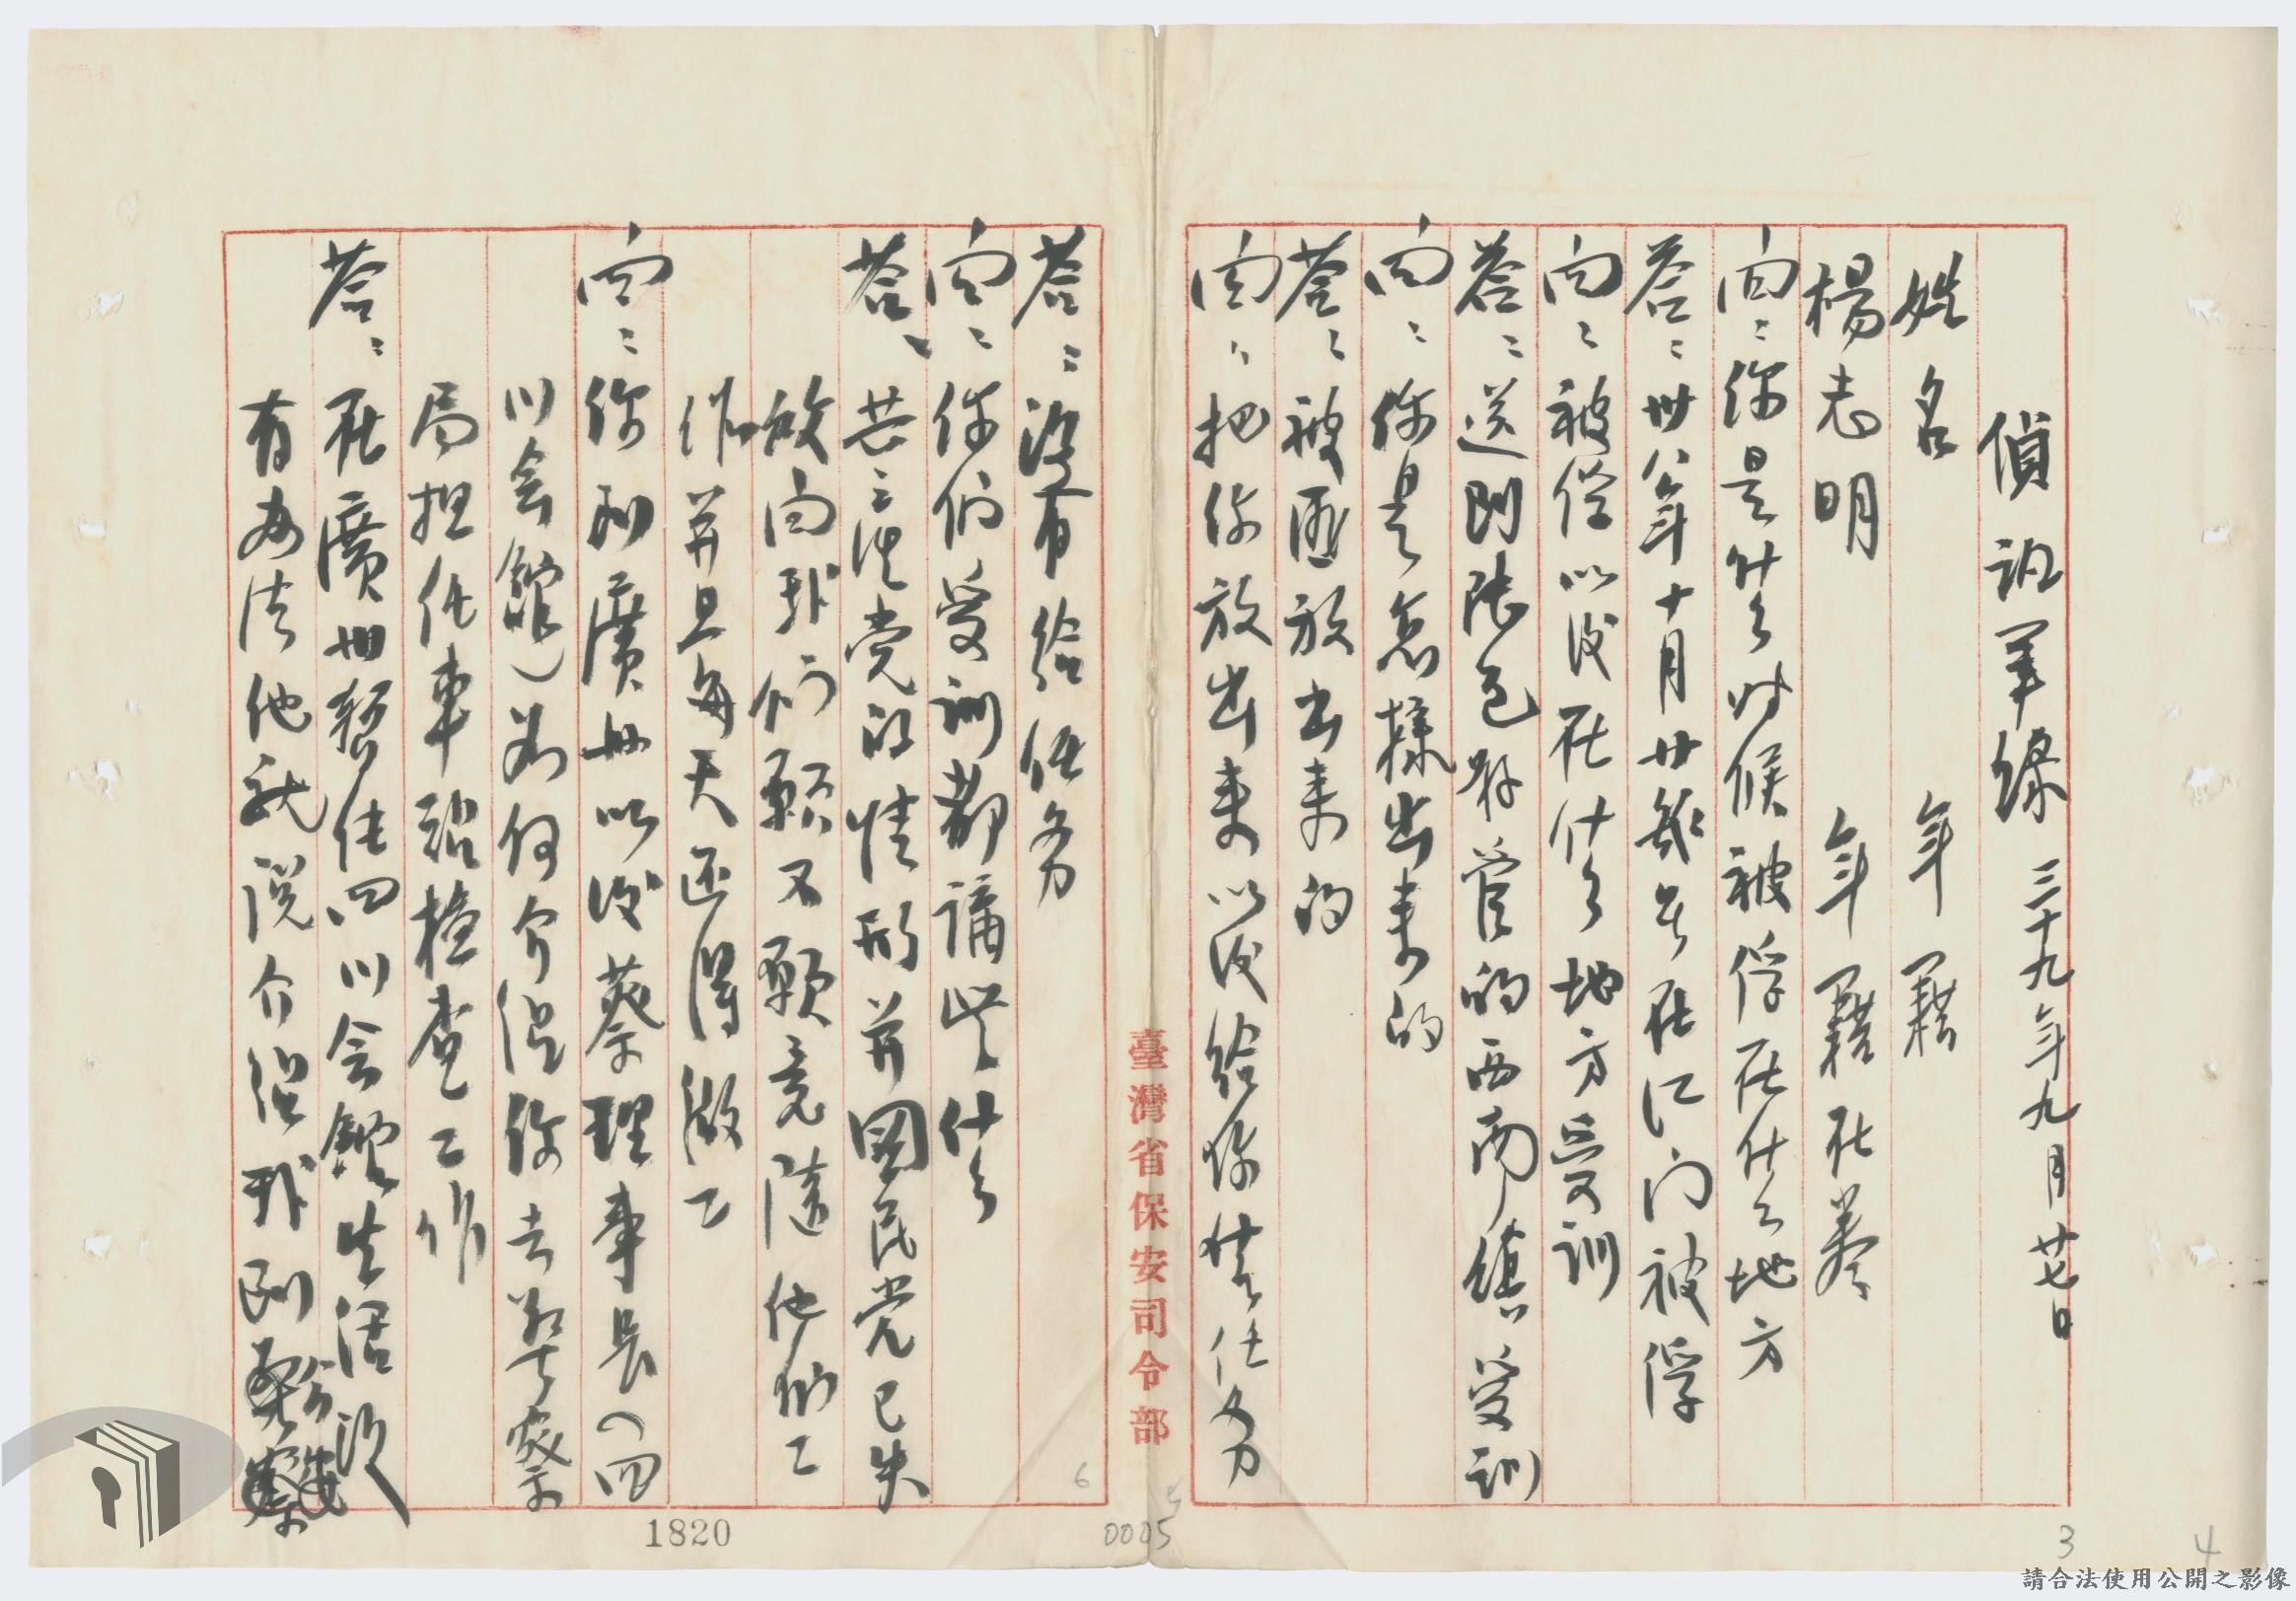 偵訊筆錄 三十九年九月廿七日
姓名 年籍
楊志明 年籍在卷
問:你是什么时候被俘在什么地方
答:卅八年十月廿幾号在江门被俘
問:被俘以後在什么地方受訓
答:送到張包 管的西南鎮受訓
問:你是怎樣出来的
答:被匪放出来的
問:把你放出来以後給你什么任務
答:沒有給任务
問:你們受訓都講些什么
答、共产党的情形并國民党已失
敗問我们願不願意隨他們工
作并且每天还得做工
問:你到廣州以後蔡理事長(四
川会館)为何介绍你去警察
局担任車站檢查工作
答:在廣州暫住四川会館生活沒
有办法他就說介绍我到
臺灣省保安司令部
1820
0005
5
6
3
4
請合法使用公開之影像